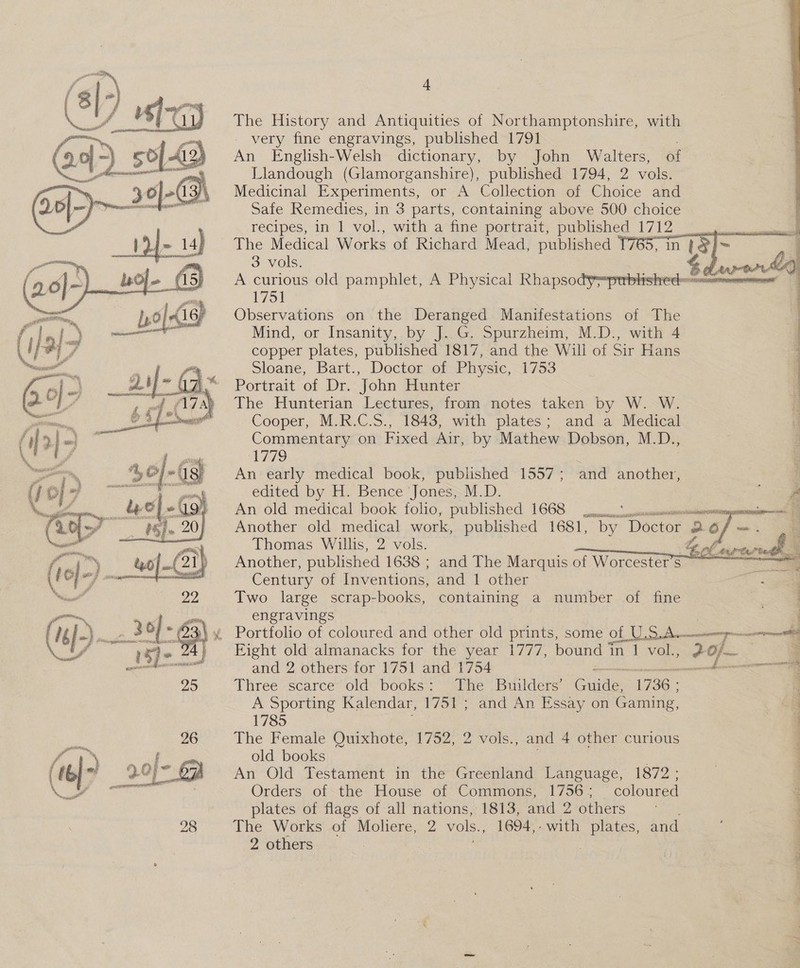 4
(8/-) 15/- 11) The History and Antiquities of Northamptonshire, with
very fine engravings, published 1791
(20/-) 50/- 12) An English-Welsh dictionary, by John Walters, of
Llandough (Glamorganshire), published 1794, 2 vols.
(20/-) 30/- 13) Medicinal Experiments, or A Collection of Choice and
Safe Remedies, in 3 parts, containing above 500 choice
recipes, in 1 vol., with a fine portrait, published 1712
12/- 14) The Medical Works of Richard Mead, published 1765, in 18/-
3 vols. Edwards
(20/-) 40/- 15) A curious old pamphlet, A Physical Rhapsody, published
1751
40/- 16) Observations on the Deranged Manifestations of The
(1/2/- Mind, or Insanity, by J. G. Spurzheim, M.D., with 4
copper plates, published 1817, and the Will of Sir Hans
Sloane, Bart., Doctor of Physic, 1753
(20/-) 21/- 17) Portrait of Dr. John Hunter
17a) The Hunterian Lectures, from notes taken by W. W.
Cooper, M.R.C.S., 1843, with plates; and a Medical
Commentary on Fixed Air, by Mathew Dobson, M.D.,
1779
30/- 18) An early medical book, published 1557; and another,
(10/- edited by H. Bence Jones, M.D.
40/- 19) An old medical book folio, published 1668
(20/- 15/- 20) Another old medical work, published 1681, by Doctor 20/-.
Thomas Willis, 2 vols.
(10/-) 40/- 21) Another, published 1638; and The Marquis of Worcester's
Century of Inventions, and 1 other
22 Two large scrap-books, containing a number of fine
engravings
(16/-) 30/- 23) Portfolio of coloured and other old prints, some of U.S.A.
15/- 24) Eight old almanacks for the year 1777, bound in 1 vol., 20/-
and 2 others for 1751 and 1754
25 Three scarce old books: The Builders' Guide, 1736;
A Sporting Kalendar, 1751; and An Essay on Gaming,
1785
26 The Female Quixhote, 1752, 2 vols., and 4 other curious
old books
(16/-) 20/- 27) An Old Testament in the Greenland Language, 1872;
Orders of the House of Commons, 1756; coloured
plates of flags of all nations, 1813, and 2 others
28 The Works of Moliere, 2 vols., 1694, with plates, and
2 others